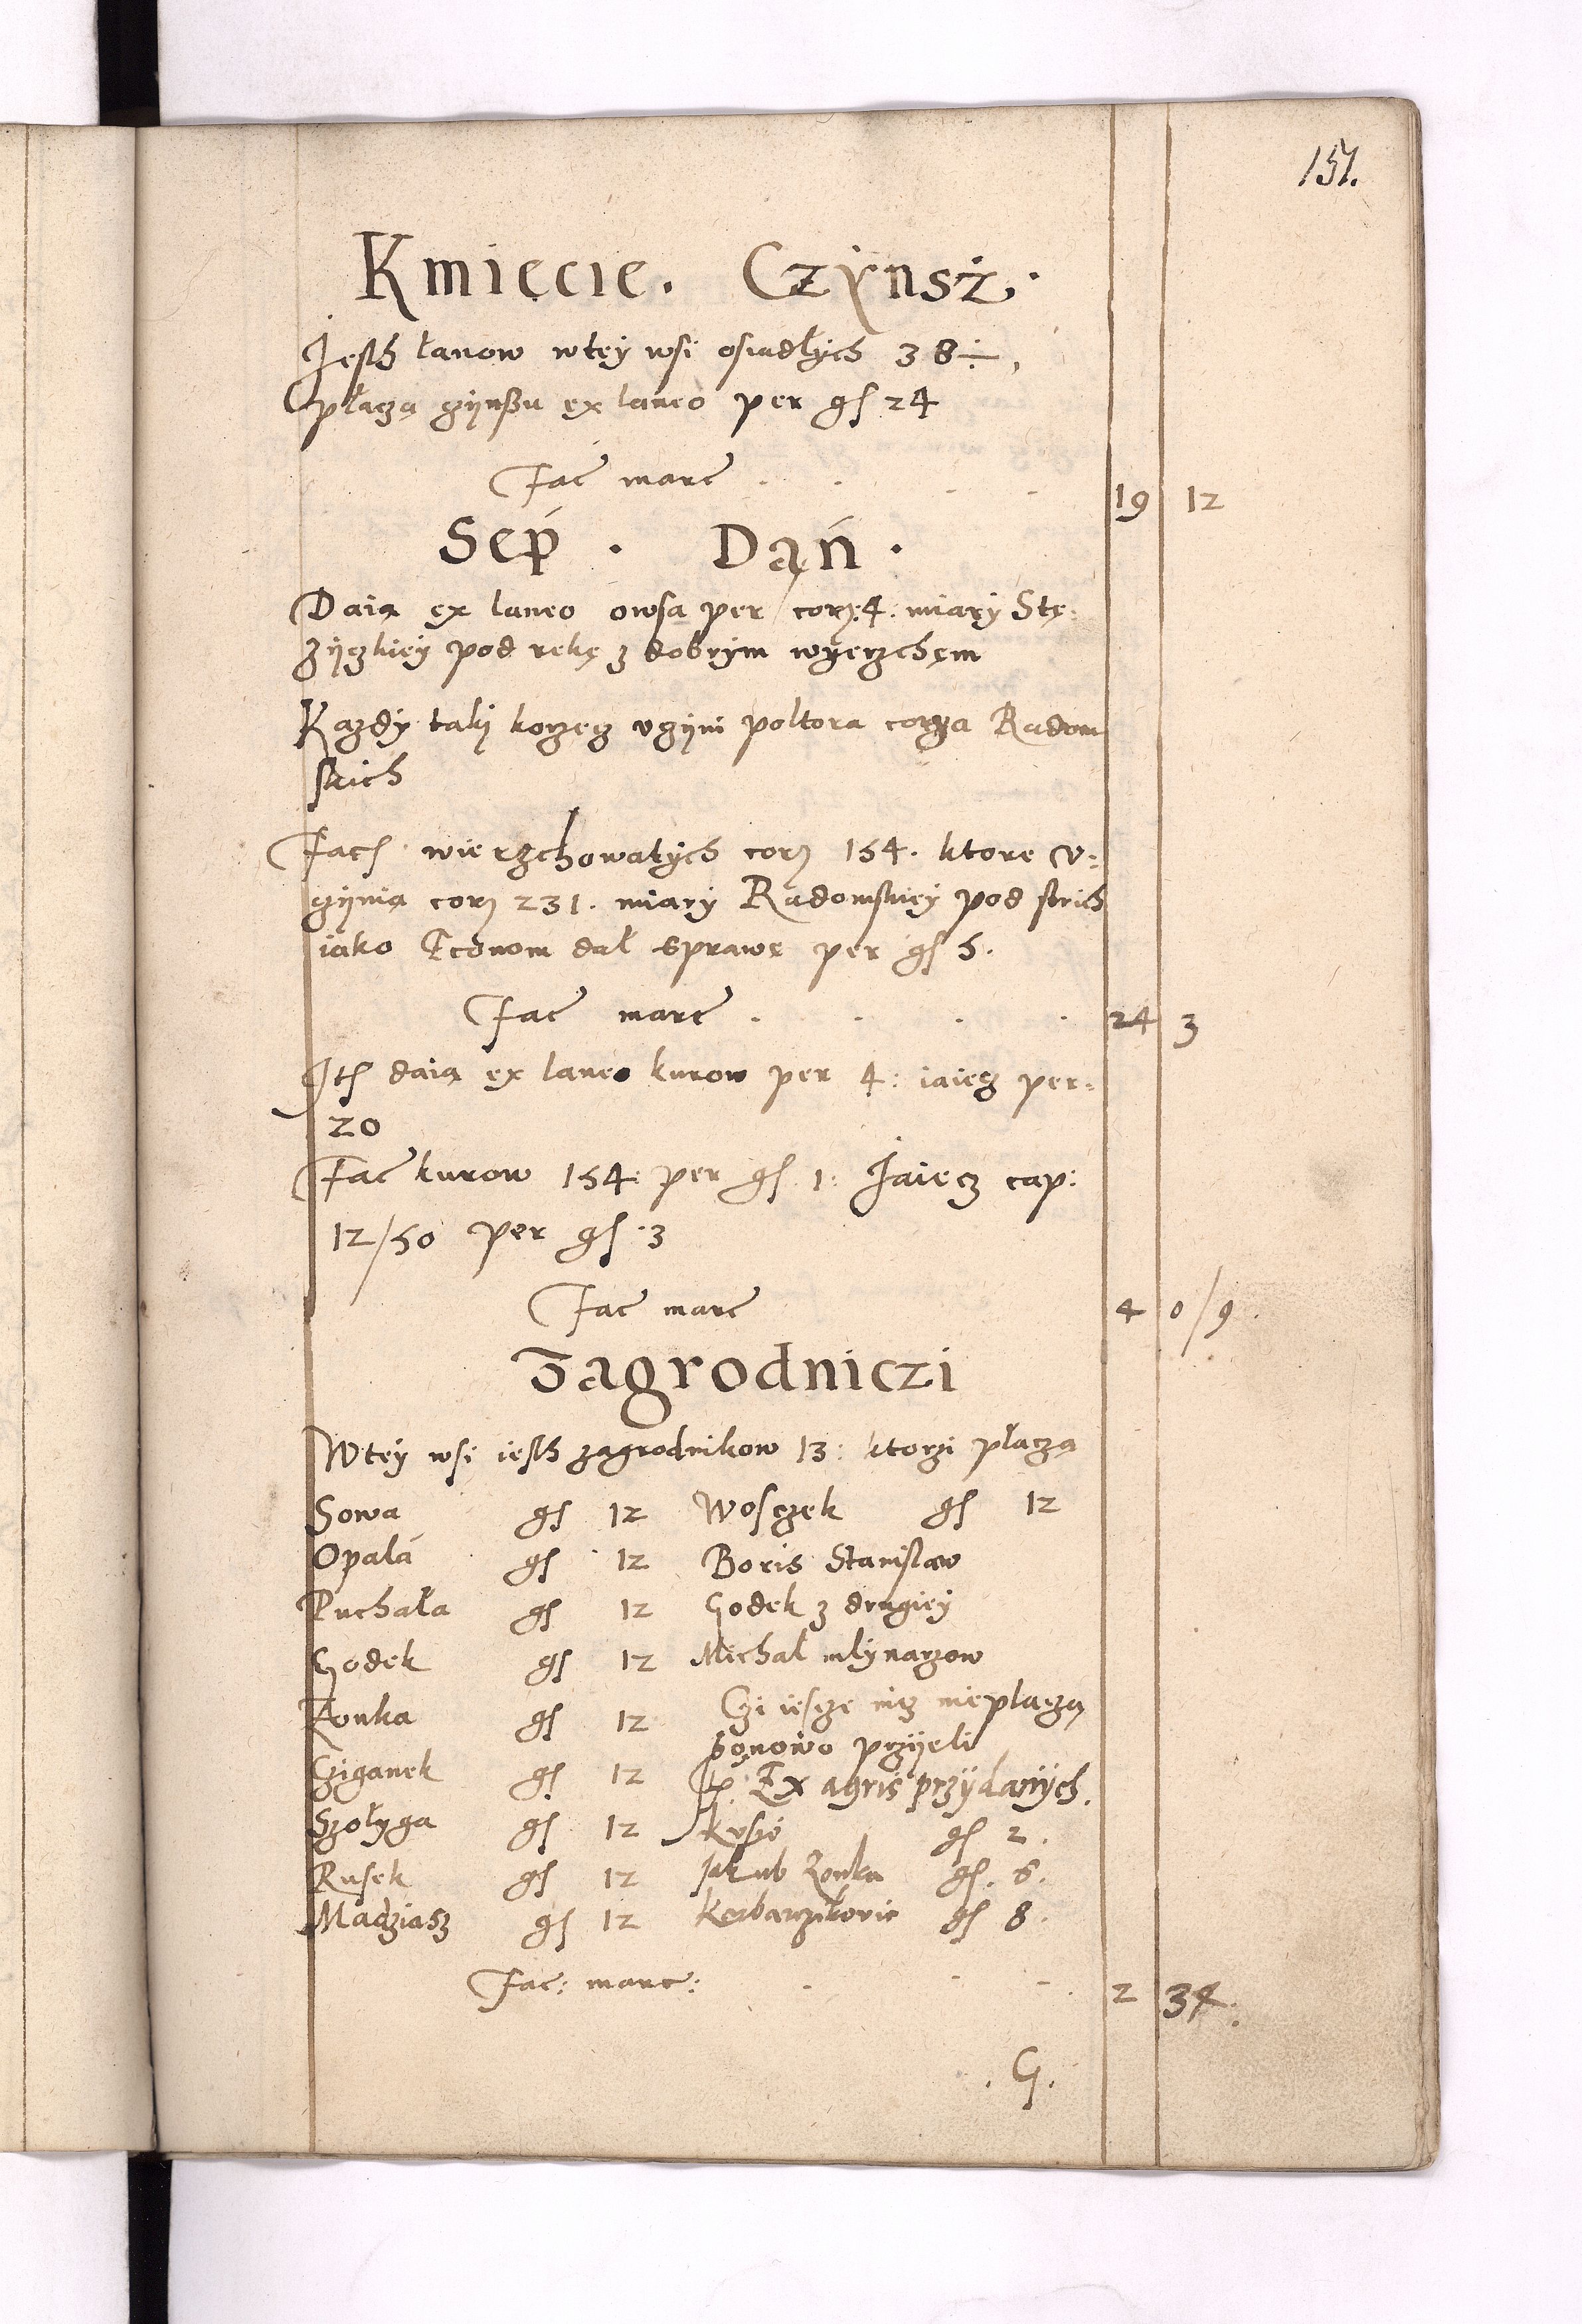 151.
Kmięcie. Czÿnsz.
Jesth łanow wtey wsi osiadłych 38 ÷,
płaczą czÿnszu ex laneo per gs 24
Fac marc 19 12
Sep . Dań .
Daią ex laneo owsa per corz. 4. miary Stę-
zÿczkiey pod rekę z dobrym wyerzchęm
Kazdÿ taki korzecz vczÿni poltora corcza Radom
skich
Facs wierzchowatych corz 154. ktore v:
czÿnią corz 231. miary Radomskiey pod strich
iako Econom dał sprawę per gs 5.
Fac marc 24 3
Its daią ex laneo kurow per 4: iaiecz per:
20
Fac kurow 154: per gs 1: Jaiecz cap:
12/50 per gs 3
Fac marc 4 0/9.
Zagrodniczi
Wtey wsi iesth zagrodnikow 13: ktorzi płaczą
Sowa gs 12 Wosczek gs 12
Opala gs 12 Boris Stanislaw
Puchała gs 12 Godek z drugiey
Godek gs 12 Michal młynarzow
Zonka gs 12 Czi iescze nicz nie placzą
bo nowo przÿeli
Cziganek gs 12 It. Ex agris przÿdanÿch.
Szołyga gs 12 gs 2.
Rusek gs 12 Jakub Zonka gs. 6.
Madziasz gs 12 gs 8.
Fac: marc: 2 34.
. G.